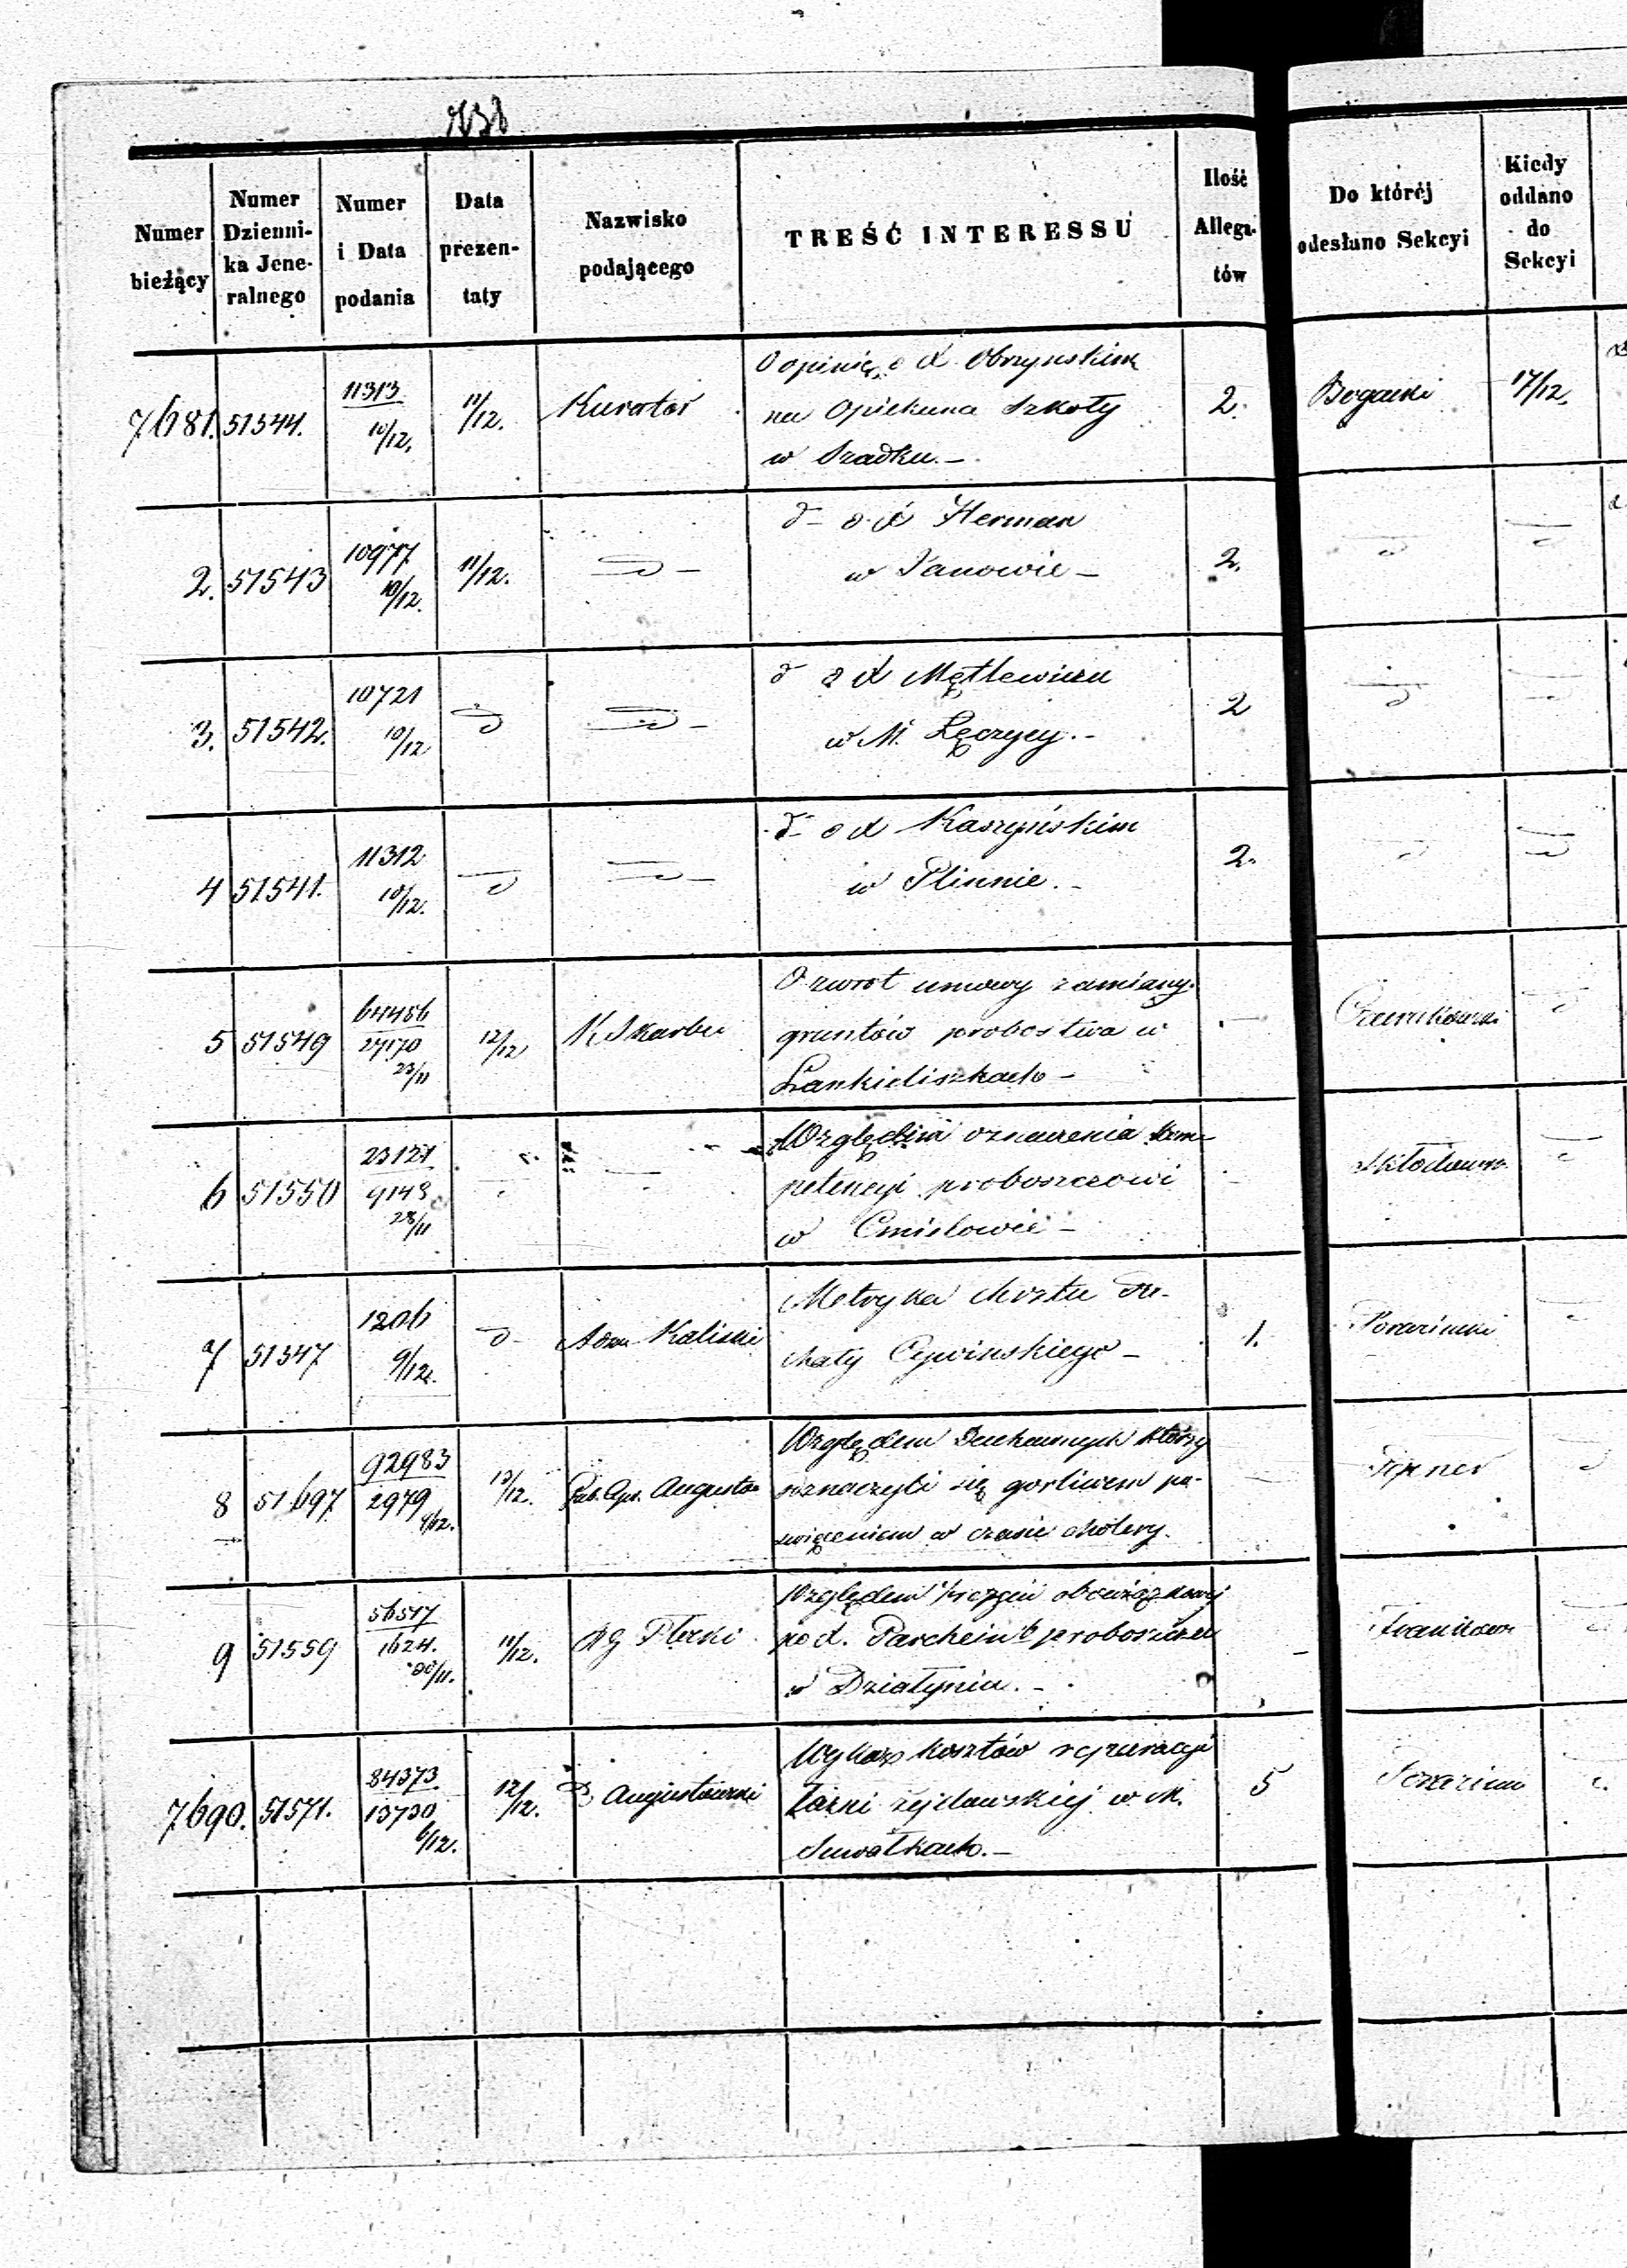 738
Numer bieżący
Numer Dzienni-ka Jene-ralnego
Numer i Data podania
Data prezen-taty
Nazwisko podającego
TREŚĆ INTERESSU
Ilość Allega-tów
Do któréj odesłano Sekcyi
Kiedy oddano do Sekcyi
7681. 51544. 11313 10/12. 11/12. Kurator
O opinię o X Obrzynskim
na Opiekuna Szkoły
w Szadku.—
2. Bogacki 17/12.
2. 51543 10977 10/12. 11/12. — d —
d — o X Herman
w Janowie —
2.
3. 51542. 10721 10/12 d — d —
d o X Mętlewiczu
w M. Łęczycy.—
2
4 51541. 11312 10/12. d — d —
d — o X Kaszyńskim
w Plinnie.—
2.
5 51549 64456 27170 23/11 12/12 K Skarbu
O zwrot umowy zamiany
gruntów probostwa w
Łankieliszkach —
6 51550 23121 9148 28/11
Względem oznaczenia kom-
petencyi proboszczowi
w Cmielowie —
7 51547 1206 9/12. d — Adm Kaliski
Metryka chrztu
Cywinskiego —
1.
8 51697 92983 2979 12/12. Gub. Cyw. Augusto
Względem Duchownych którzy
odznaczyli się gorliwem po-
święceniem w czasie cholery.
9 51559 56517 1624. 30/11. 11/12. RG Płocki
Względem
X. proboszcza
w Działyniu.—
7690. 51571. 84373 13730 6/12. 12/12. d Augustowski
Wykaz kosztów reparacyi
Łaźni żydowskiej w M.
Suwałkach.—
5